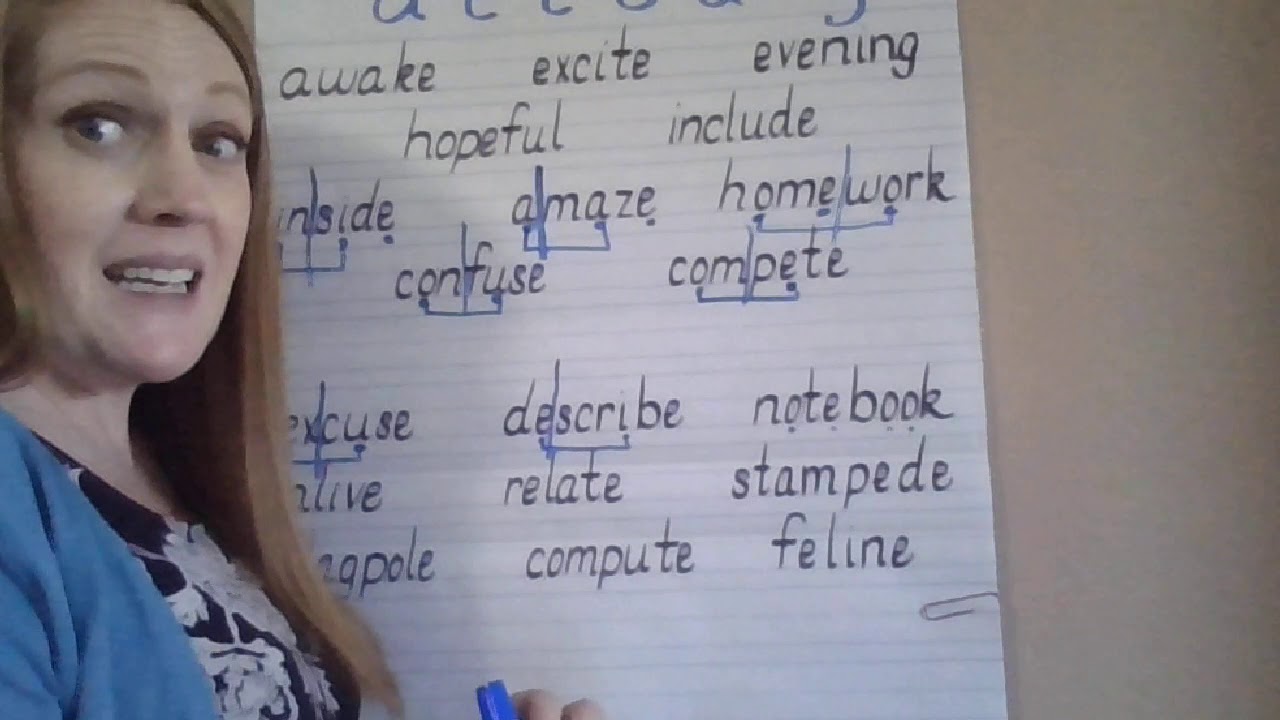 awake excite evening
hopeful include
inside amaze homework
confuse compete
excuse describe notebook
alive relate stampede
compute feline